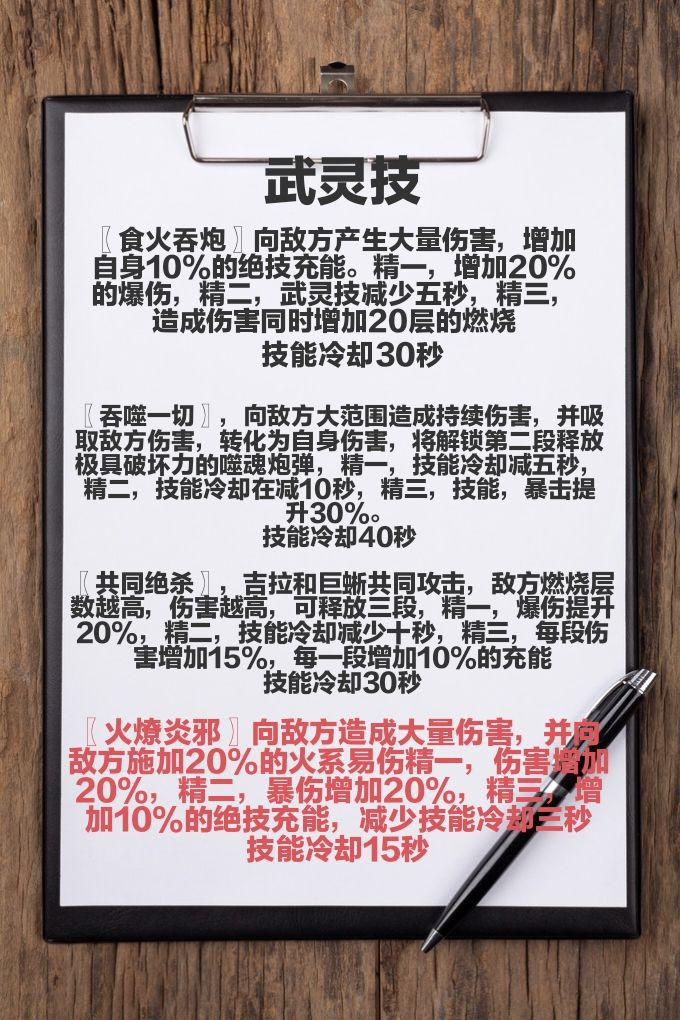 武灵技
〖食火吞炮〗向敌方产生大量伤害，增加
自身10%的绝技充能。精一，增加20%
的爆伤，精二，武灵技减少五秒，精三，
造成伤害同时增加20层的燃烧
技能冷却30秒
〖吞噬一切〗，向敌方大范围造成持续伤害，并吸
取敌方伤害，转化为自身伤害，将解锁第二段释放
极具破坏力的噬魂炮弹，精一，技能冷却减五秒，
精二，技能冷却在减10秒，精三，技能，暴击提
升30%。
技能冷却40秒
〖共同绝杀〗，吉拉和巨蜥共同攻击，敌方燃烧层
数越高，伤害越高，可释放三段，精一，爆伤提升
20%，精二，技能冷却减少十秒，精三，每段伤
害增加15%，每一段增加10%的充能
技能冷却30秒
〖火燎炎邪〗向敌方造成大量伤害，并向
敌方施加20%的火系易伤精一，伤害增加
20%，精二，暴伤增加20%，精三，增
加10%的绝技充能，减少技能冷却三秒
技能冷却15秒